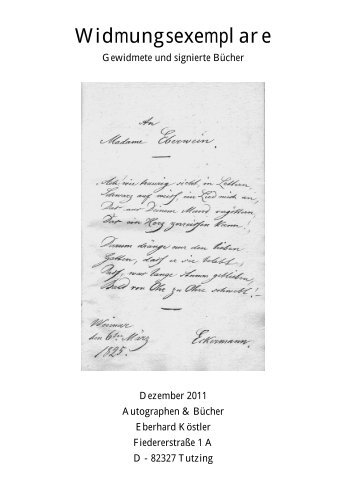 Widmungsexemplare
Gewidmete und signierte Bücher
An
Madame Eberwein.
Ach, wie traurig sieht in Lettern,
Schwarz auf weiß, ein Lied mich an,
Das aus Deinem Mund vergöttern,
Das ein Herz zerreißen kann!
Darum dränge nur den lieben
Gatten, daß er sie belebt,
Daß, was lange stumm geblieben,
Bald von Ohr zu Ohre schwebt!
Weimar
den 6ten März
1825.
Eckermann.
Dezember 2011
Autographen & Bücher
Eberhard Köstler
Fiedererstraße 1 A
D - 82327 Tutzing